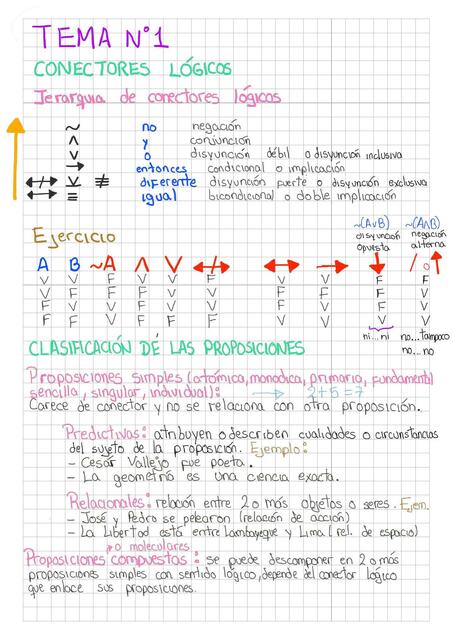 TEMA N°1
CONECTORES LÓGICOS
Jerarquía de conectores lógicos
~ no negación
∧ y conjunción
∨ o disyunción débil o disyunción inclusiva
→ entonces condicional o implicación
↮ ⊻ ≢ diferente disyunción fuerte o disyunción exclusiva
↔ ≡ igual bicondicional o doble implicación
Ejercicio
~(A∨B) disyunción opuesta
~(A∧B) negación alterna
A B ~A ∧ ∨ ↮ ↔ → ↓ / o ↑
V V F V V F V V F F
V F F F V V F F F V
F V V F V V F V F V
F F V F F F V V V V
ni...ni
no...tampoco
no...no
CLASIFICACIÓN DE LAS PROPOSICIONES
Proposiciones simples (atómica, monádica, primaria, fundamental
sencilla, singular, individual): → 2+5=7
Carece de conector y no se relaciona con otra proposición.
Predictivas: atribuyen o describen cualidades o circunstancias
del sujeto de la proposición. Ejemplo:
- César Vallejo fue poeta.
- La geometría es una ciencia exacta.
Relacionales: relación entre 2 o más objetos o seres. Ejem.
- José y Pedro se pelearon (relación de acción)
- La Libertad está entre Lambayeque y Lima (rel. de espacio)
→ o moleculares
Proposiciones compuestas: se puede descomponer en 2 o más
proposiciones simples con sentido lógico, depende del conector lógico
que enlace sus proposiciones.